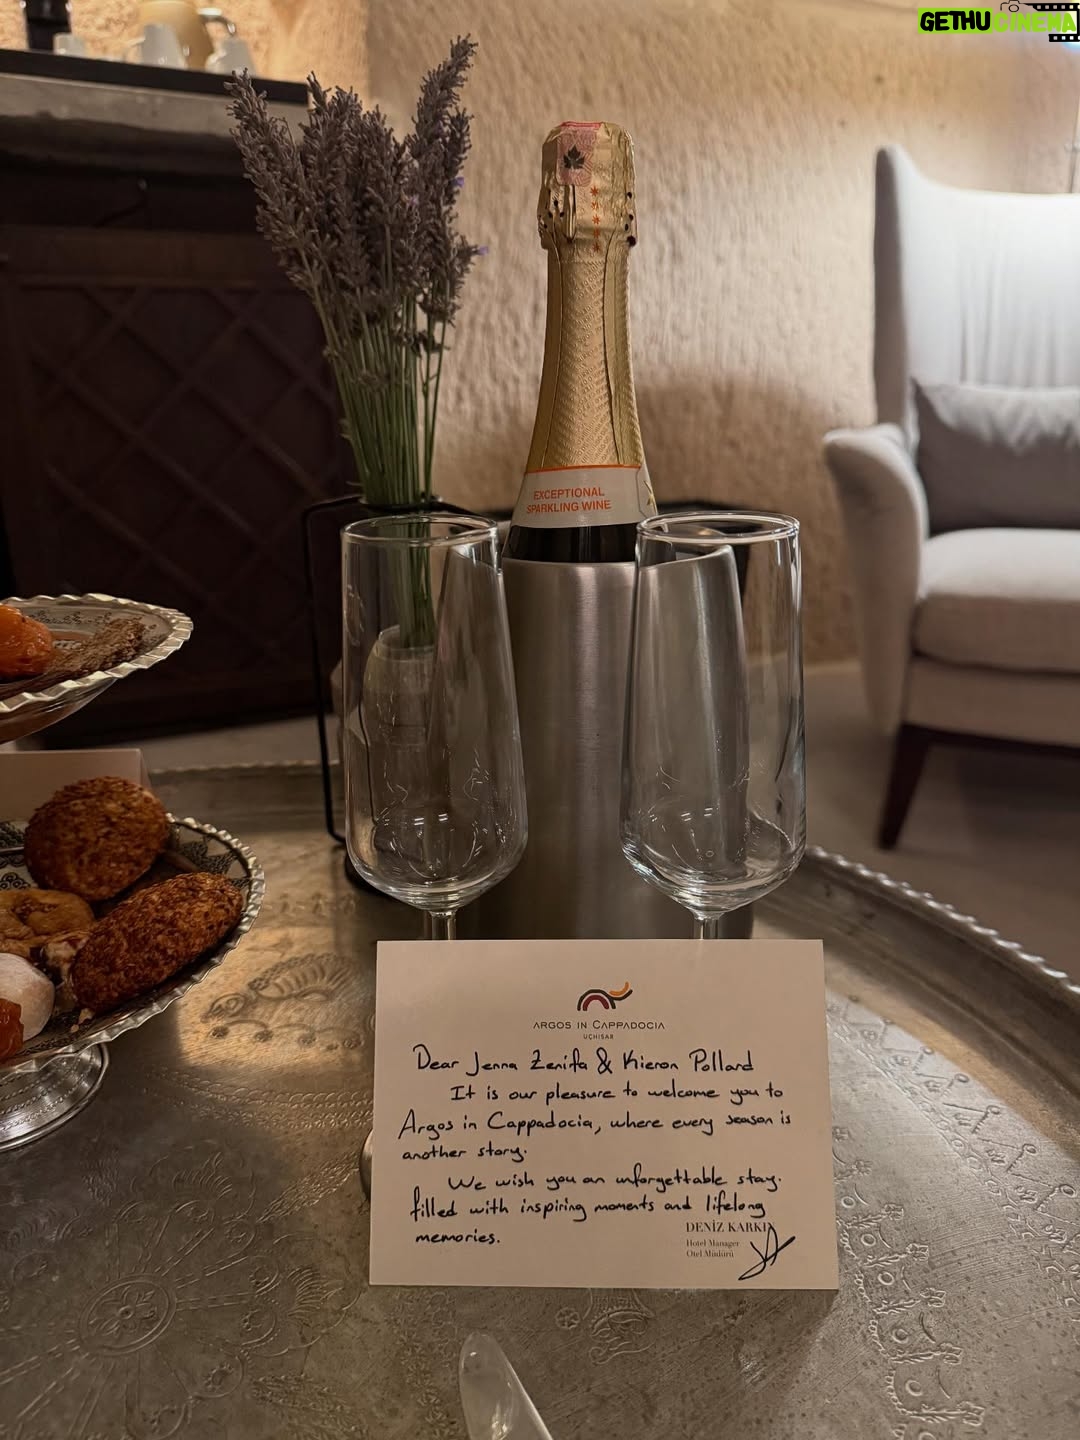 GETHUCINEMA
EXCEPTIONAL
SPARKLING WINE
ARGOS IN CAPPADOCIA
UÇHİSAR
Dear Jenna Zenifa & Kieron Pollard
It is our pleasure to welcome you to
Argos in Cappadocia, where every season is
another story.
We wish you an unforgettable stay.
filled with inspiring moments and lifelong
memories.
DENİZ KARKIN
Hotel Manager
Otel Müdürü